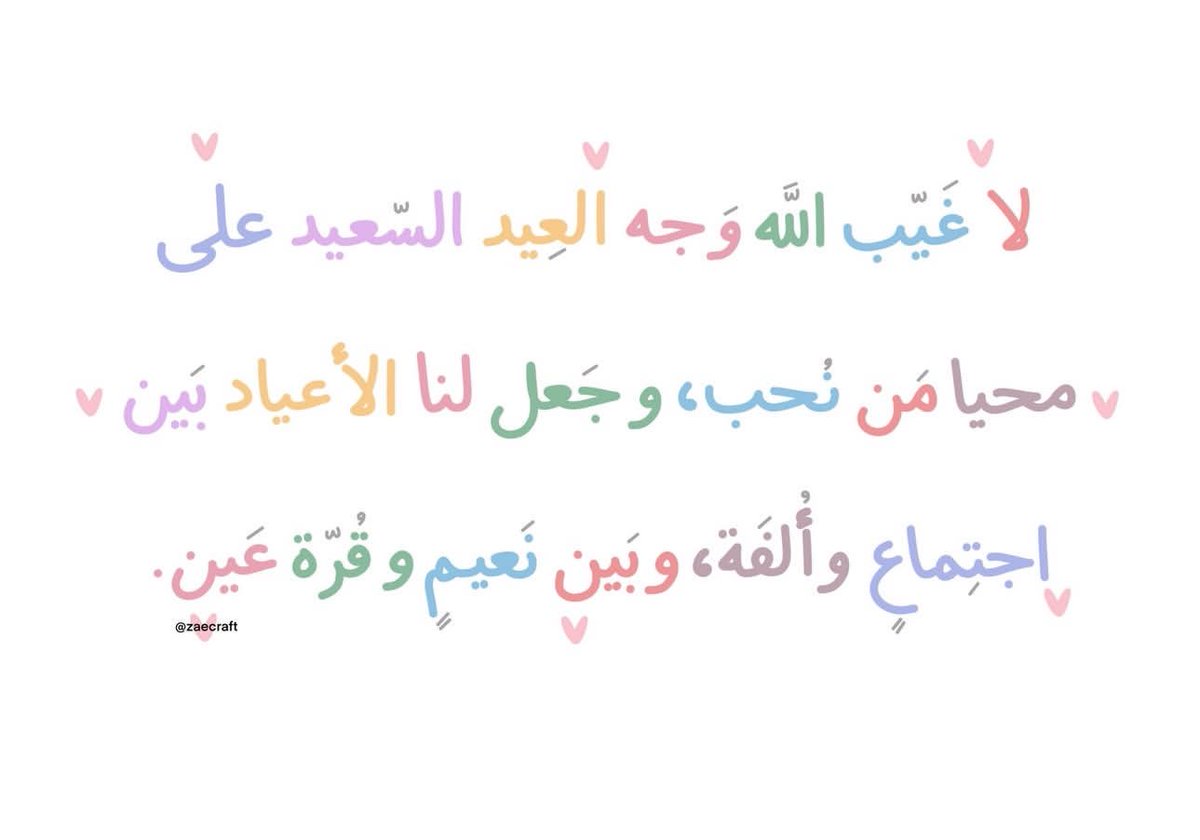 لا غَيّب اللَّه وَجه العِيد السّعيد على
محيا مَن نُحب، و جَعل لنا الأعياد بَين
اجتِماعٍ و أُلفَة، و بَين نَعيمٍ و قُرّة عَين.
@zaecraft